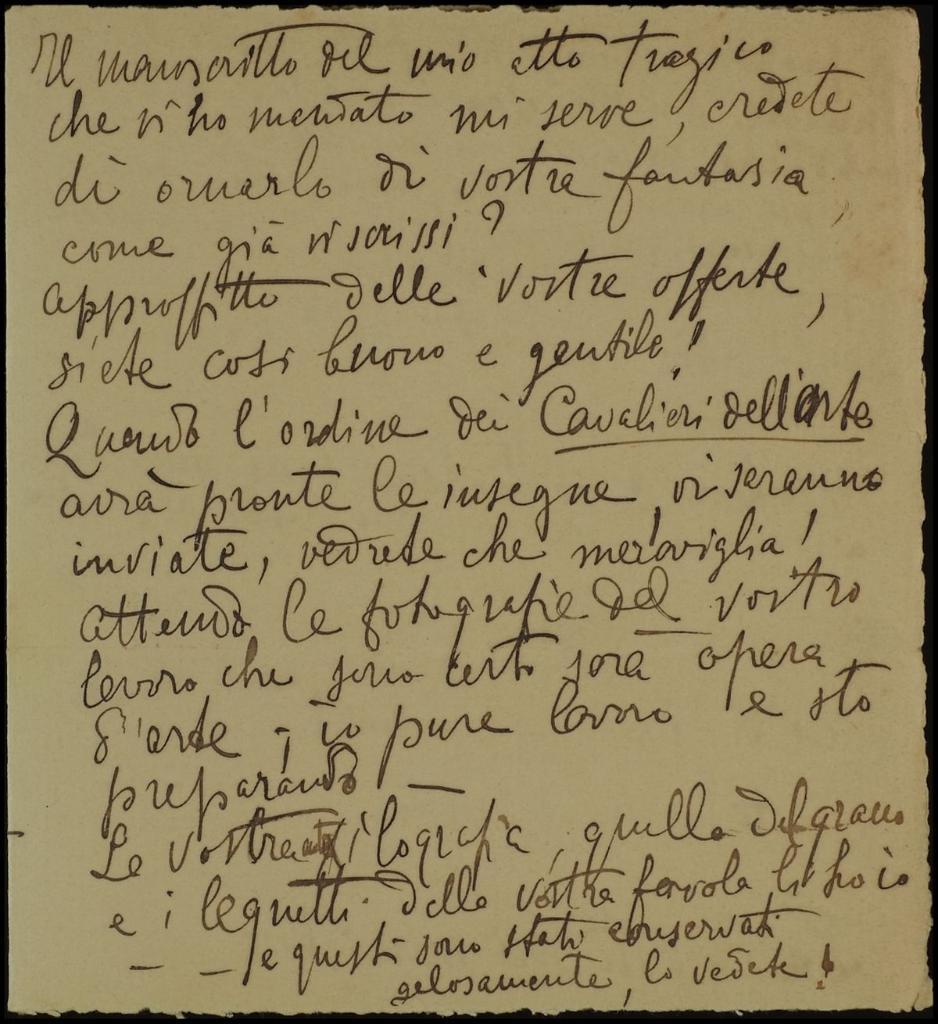 Il manoscritto del mio atto tragico
che vi ho mandato mi serve, credete
di ornarlo di vostra fantasia,
come già vi scrissi?
approffitto delle vostre offerte,
siete così buono e gentile!
Quando l'ordine dei Cavalieri dell'arte
avrà pronte le insegne, vi seranno
inviate, vedrete che meraviglia!
attendo le fotografie del vostro
lavoro che sono certo sarà opera
d'arte; io pure lavoro e sto
preparando —
La vostra xilografia, quella del grano
e i legnetti della vostra favola li ho io
— — e questi sono stati conservati
gelosamente, lo vedete!